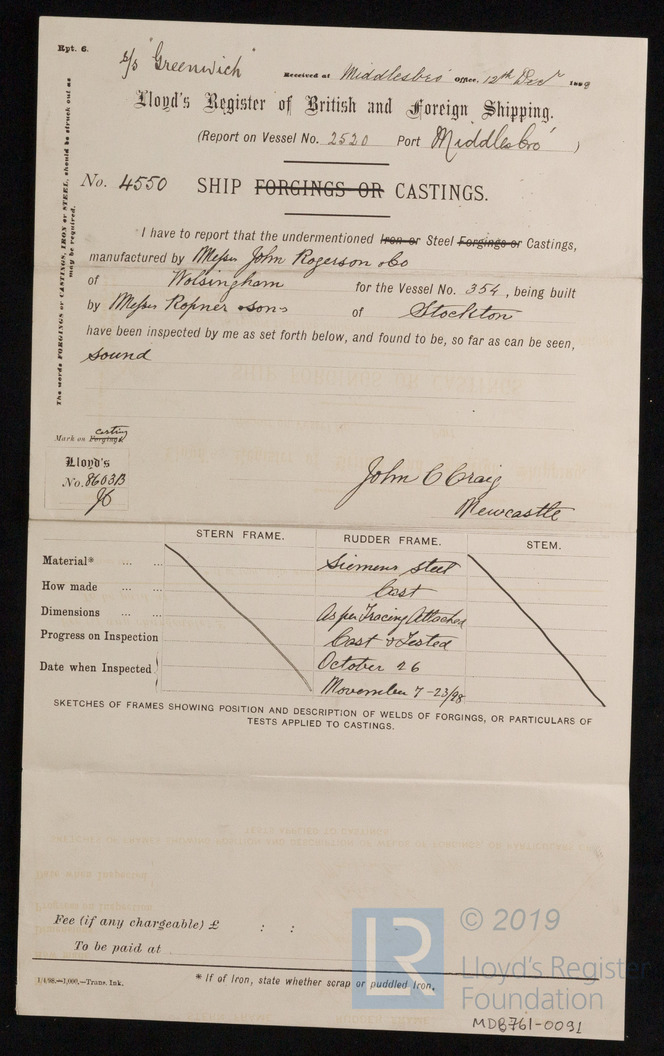 Rpt. 6.
s/s "Greenwich"
Received at Middlesbro' Office, 12th Decr 1898
Lloyd's Register of British and Foreign Shipping.
(Report on Vessel No. 2520 Port Middlesbro' )
No. 4550 SHIP FORGINGS OR CASTINGS.
The words FORGINGS or CASTINGS, IRON or STEEL, should be struck out as may be required.
I have to report that the undermentioned Iron or Steel Forgings or Castings,
manufactured by Messrs John Rogerson & Co
of Wolsingham for the Vessel No. 354, being built
by Messrs Ropner & Sons of Stockton
have been inspected by me as set forth below, and found to be, so far as can be seen,
sound
Mark on Forging. casting
Lloyd's
No. 8603B
John C Craig
Newcastle
STERN FRAME. RUDDER FRAME. STEM.
Material* ... ... Siemens Steel
How made ... Cast
Dimensions ... ... As per Tracing Attached
Progress on Inspection Cast & Tested
Date when Inspected October 26
November 7-23/98
SKETCHES OF FRAMES SHOWING POSITION AND DESCRIPTION OF WELDS OF FORGINGS, OR PARTICULARS OF
TESTS APPLIED TO CASTINGS.
Fee (if any chargeable) £ : :
To be paid at
1/4/98.—1,000.—Trans. Ink.
* If of Iron, state whether scrap or puddled Iron.
LR
© 2019
Lloyd's Register
Foundation
MDB761-0091